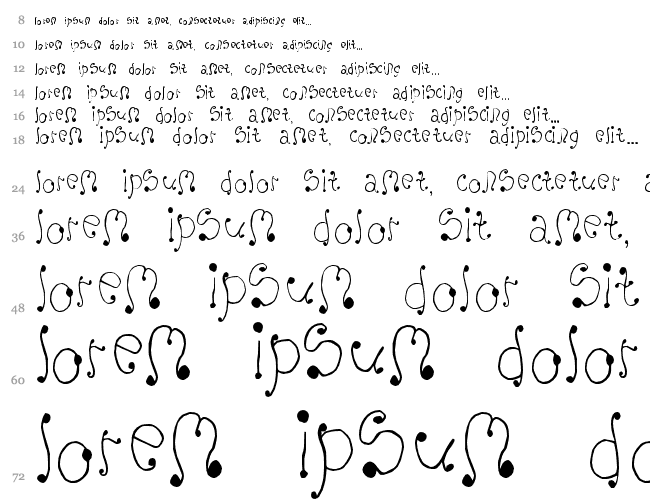 8 lorem ipsum dolor sit amet, consectetuer adipiscing elit...
10 lorem ipsum dolor sit amet, consectetuer adipiscing elit...
12 lorem ipsum dolor sit amet, consectetuer adipiscing elit...
14 lorem ipsum dolor sit amet, consectetuer adipiscing elit...
16 lorem ipsum dolor sit amet, consectetuer adipiscing elit...
18 lorem ipsum dolor sit amet, consectetuer adipiscing elit...
24 lorem ipsum dolor sit amet, consectetuer a
36 lorem ipsum dolor sit amet,
48 lorem ipsum dolor sit
60 lorem ipsum dolor
72 lorem ipsum do